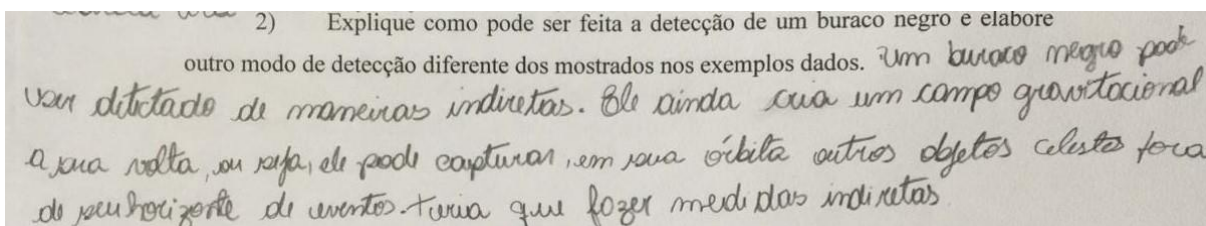 2) Explique como pode ser feita a detecção de um buraco negro e elabore
outro modo de detecção diferente dos mostrados nos exemplos dados. Um buraco negro pode
ser detectado de maneiras indiretas. Ele ainda cria um campo gravitacional
a sua volta, ou seja, ele pode capturar, em sua órbita outros objetos celestes fora
do seu horizonte de eventos. teria que fazer medidas indiretas